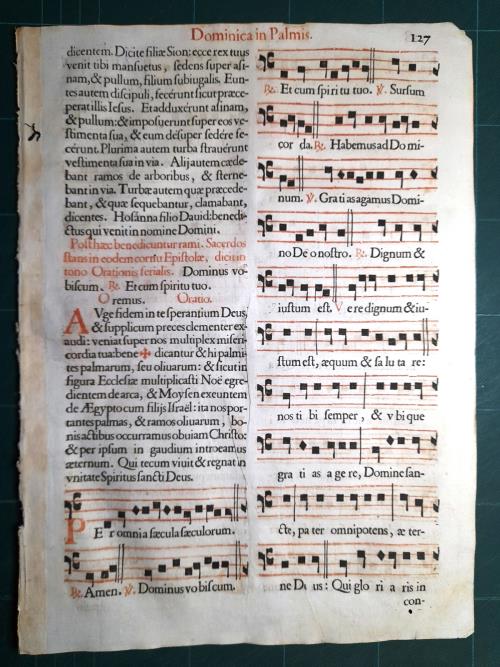 Dominica in Palmis.
127
dicentem. Dicite filiæ Sion: ecce rex tuus
venit tibi mansuetus, sedens super asi-
nam, & pullum, filium subiugalis. Eun-
tes autem discipuli, fecérunt sicut præce-
perat illis Iesus. Et adduxérunt asinam,
& pullum: & imposuérunt super eos ve-
stimenta sua, & eum désuper sedére fe-
cérunt. Plurima autem turba strauérunt
vestimenta sua in via. Alij autem cæde-
bant ramos de arboribus, & sterne-
bant in via. Turbæ autem quæ præcede-
bant, & quæ sequebantur, clamabant,
dicentes. Hosánna filio Dauid: benedi-
ctus qui venit in nomine Domini.
Post hæc benedicuntur rami. Sacerdos
stans in eodem cornu Epistolæ, dicit in
tono Orationis ferialis. Dominus vo-
biscum. ℟. Et cum spiritu tuo.
Oremus. Oratio.
AVge fidem in te sperantium Deus,
& supplicum preces clementer ex-
audi: veniat super nos multiplex miseri-
cordia tua: bene✠dicantur & hi palmi-
tes palmarum, seu oliuarum: & sicut in
figura Ecclesiæ multiplicasti Noë egre-
dientem de arca, & Moysen exeuntem
de Ægypto cum filijs Israël: ita nos por-
tantes palmas, & ramos oliuarum, bo-
nis actibus occurramus obuiam Christo:
& per ipsum in gaudium introeamus
æternum. Qui tecum viuit & regnat in
vnitate Spiritus sancti Deus.
PEr omnia sæcula sæculorum.
℟. Amen. ℣. Dominus vobiscum.
℟. Et cum spi ri tu tuo. ℣. Sursum
cor da. ℟. Habemus ad Do mi-
num. ℣. Gra ti as agamus Domi-
no De o nostro. ℟. Dignum &
iustum est. Vere dignum & iu-
stum est, æquum & sa lu ta re:
nos ti bi semper, & v bique
gra ti as a ge re, Domine san-
cte, pa ter omnipotens, æ ter-
ne De us: Qui glo ri a ris in
con-